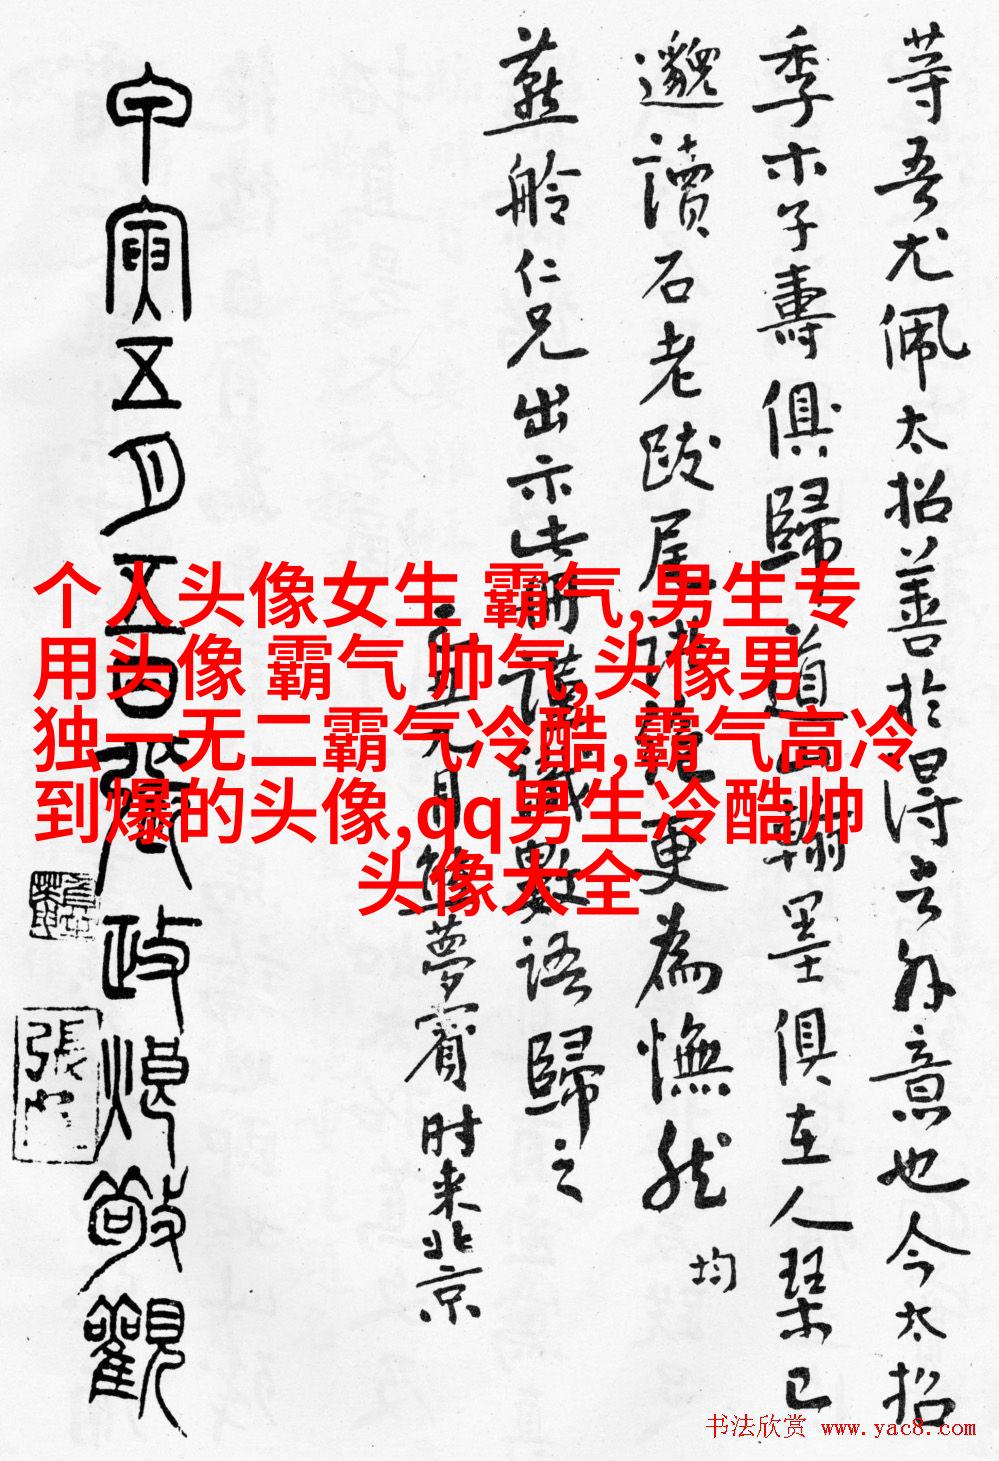 等吾尤佩太招善於得言外意也今太招
季木子壽俱歸道山翰墨俱在人琴已
邈讀石老跋尾諸 更為憮然 均
燕舲仁兄出示此册謹識數語歸之
丑九月 夢賓时来北京
甲寅五月五日 政烺敬觀
張
个人头像女生 霸气,男生专
用头像 霸气 帅气,头像男
独一无二霸气冷酷,霸气高冷
到爆的头像,qq男生冷酷帅
头像大全
书法欣赏 www.yac8.com